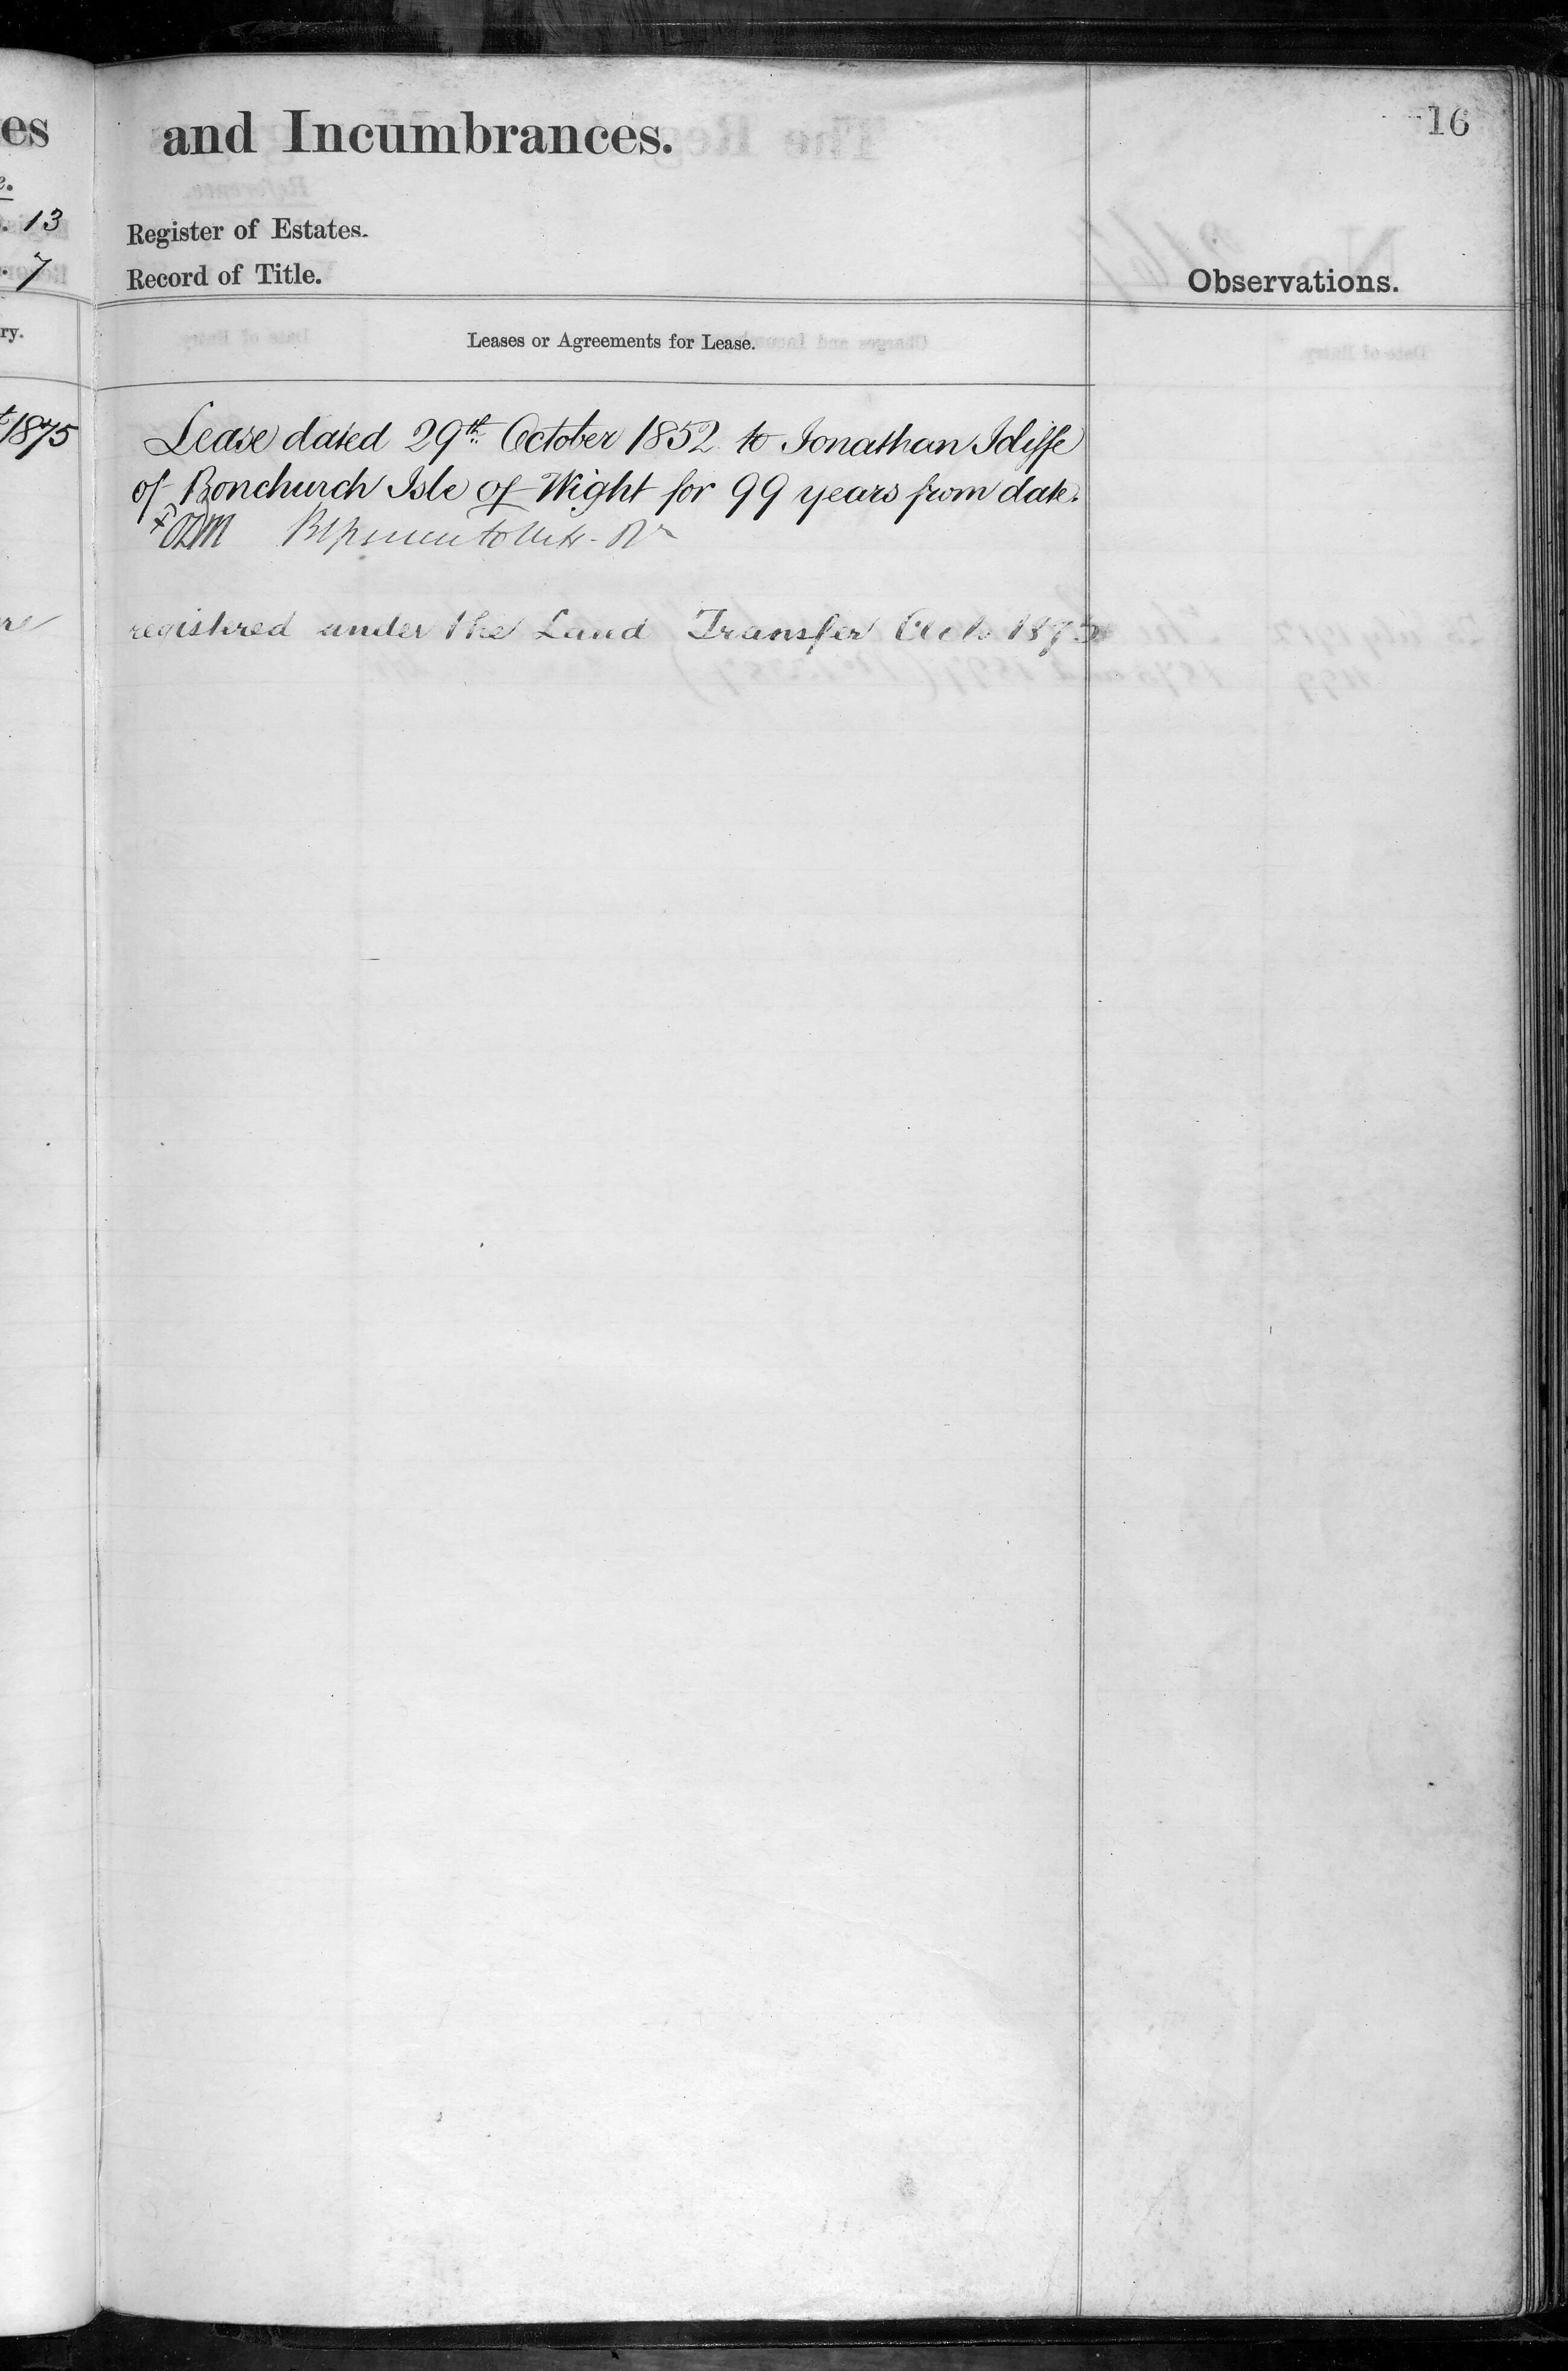 es
and Incumbrances.
16
e.
. 13
Register of Estates.
. 7
Record of Title.
Observations.
ry.
Leases or Agreements for Lease.
1875
Lease dated 29th October 1852 to Jonathan Icliffe
of Bonchurch Isle of Wight for 99 years from date.
registered under the Land Transfer Acts 1875